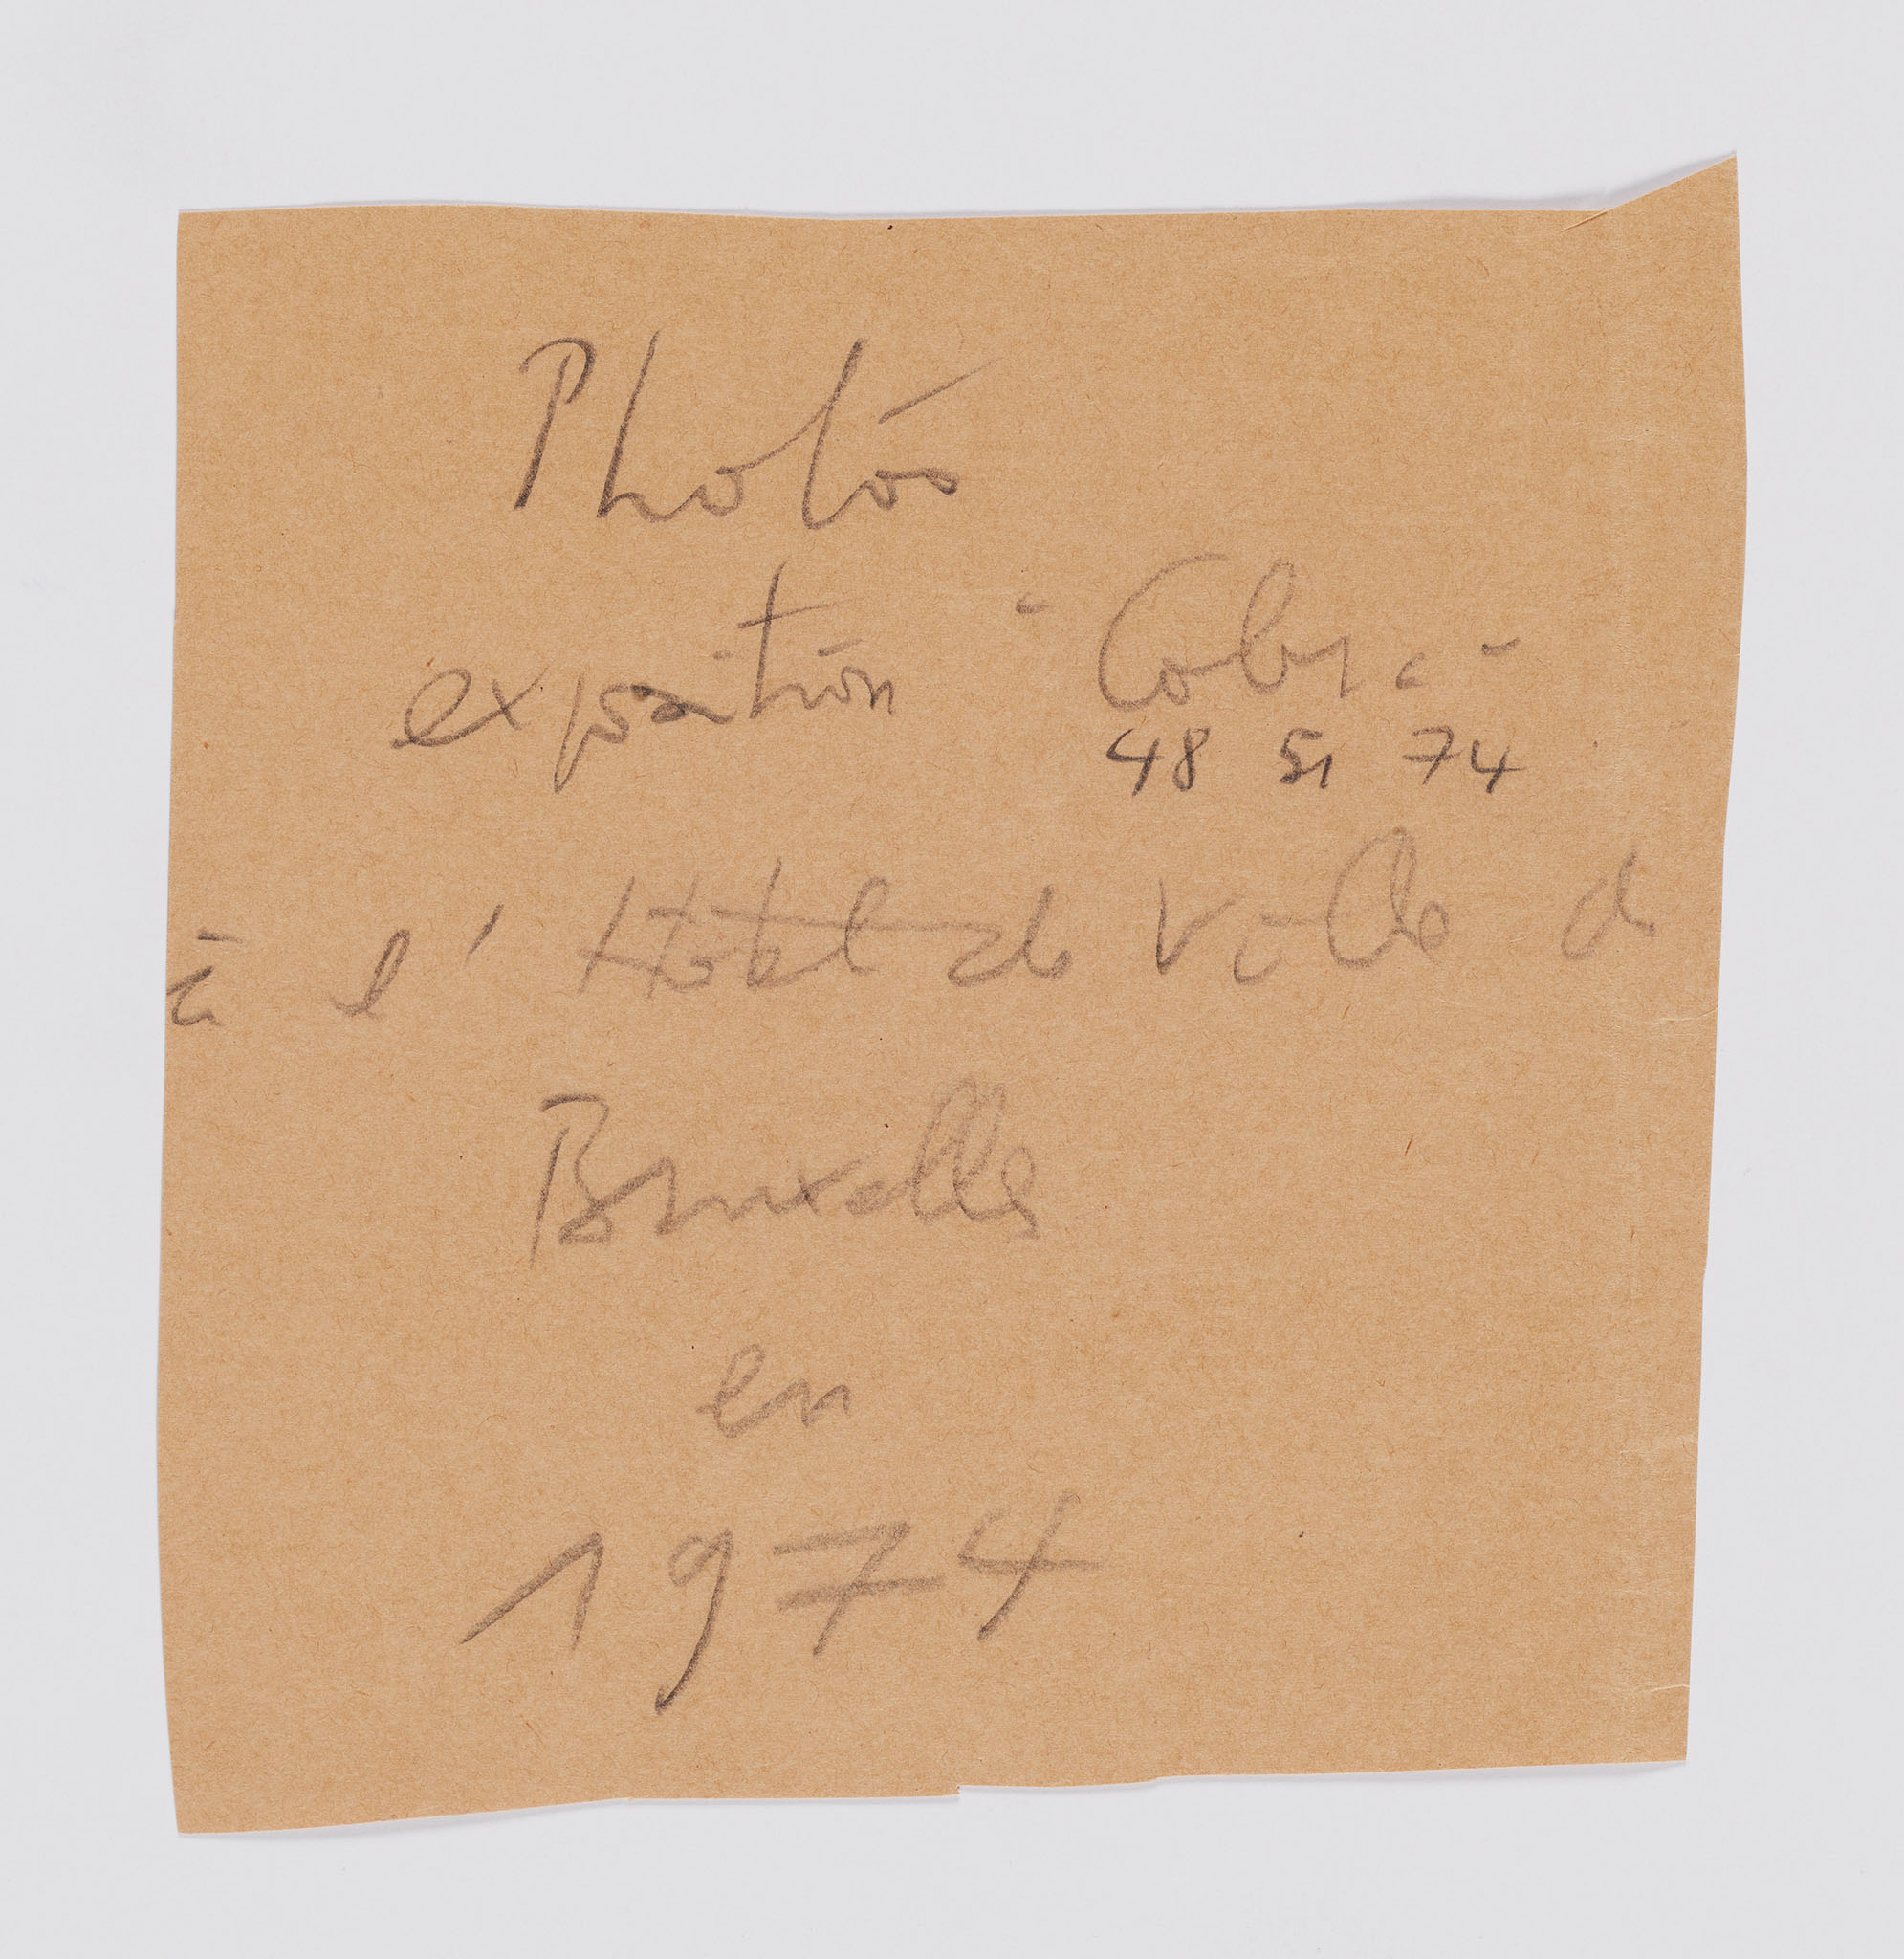 Photos
exposition "Cobra"
48 51 74
à l'Hôtel de Ville de
Bruxelles
en
1974